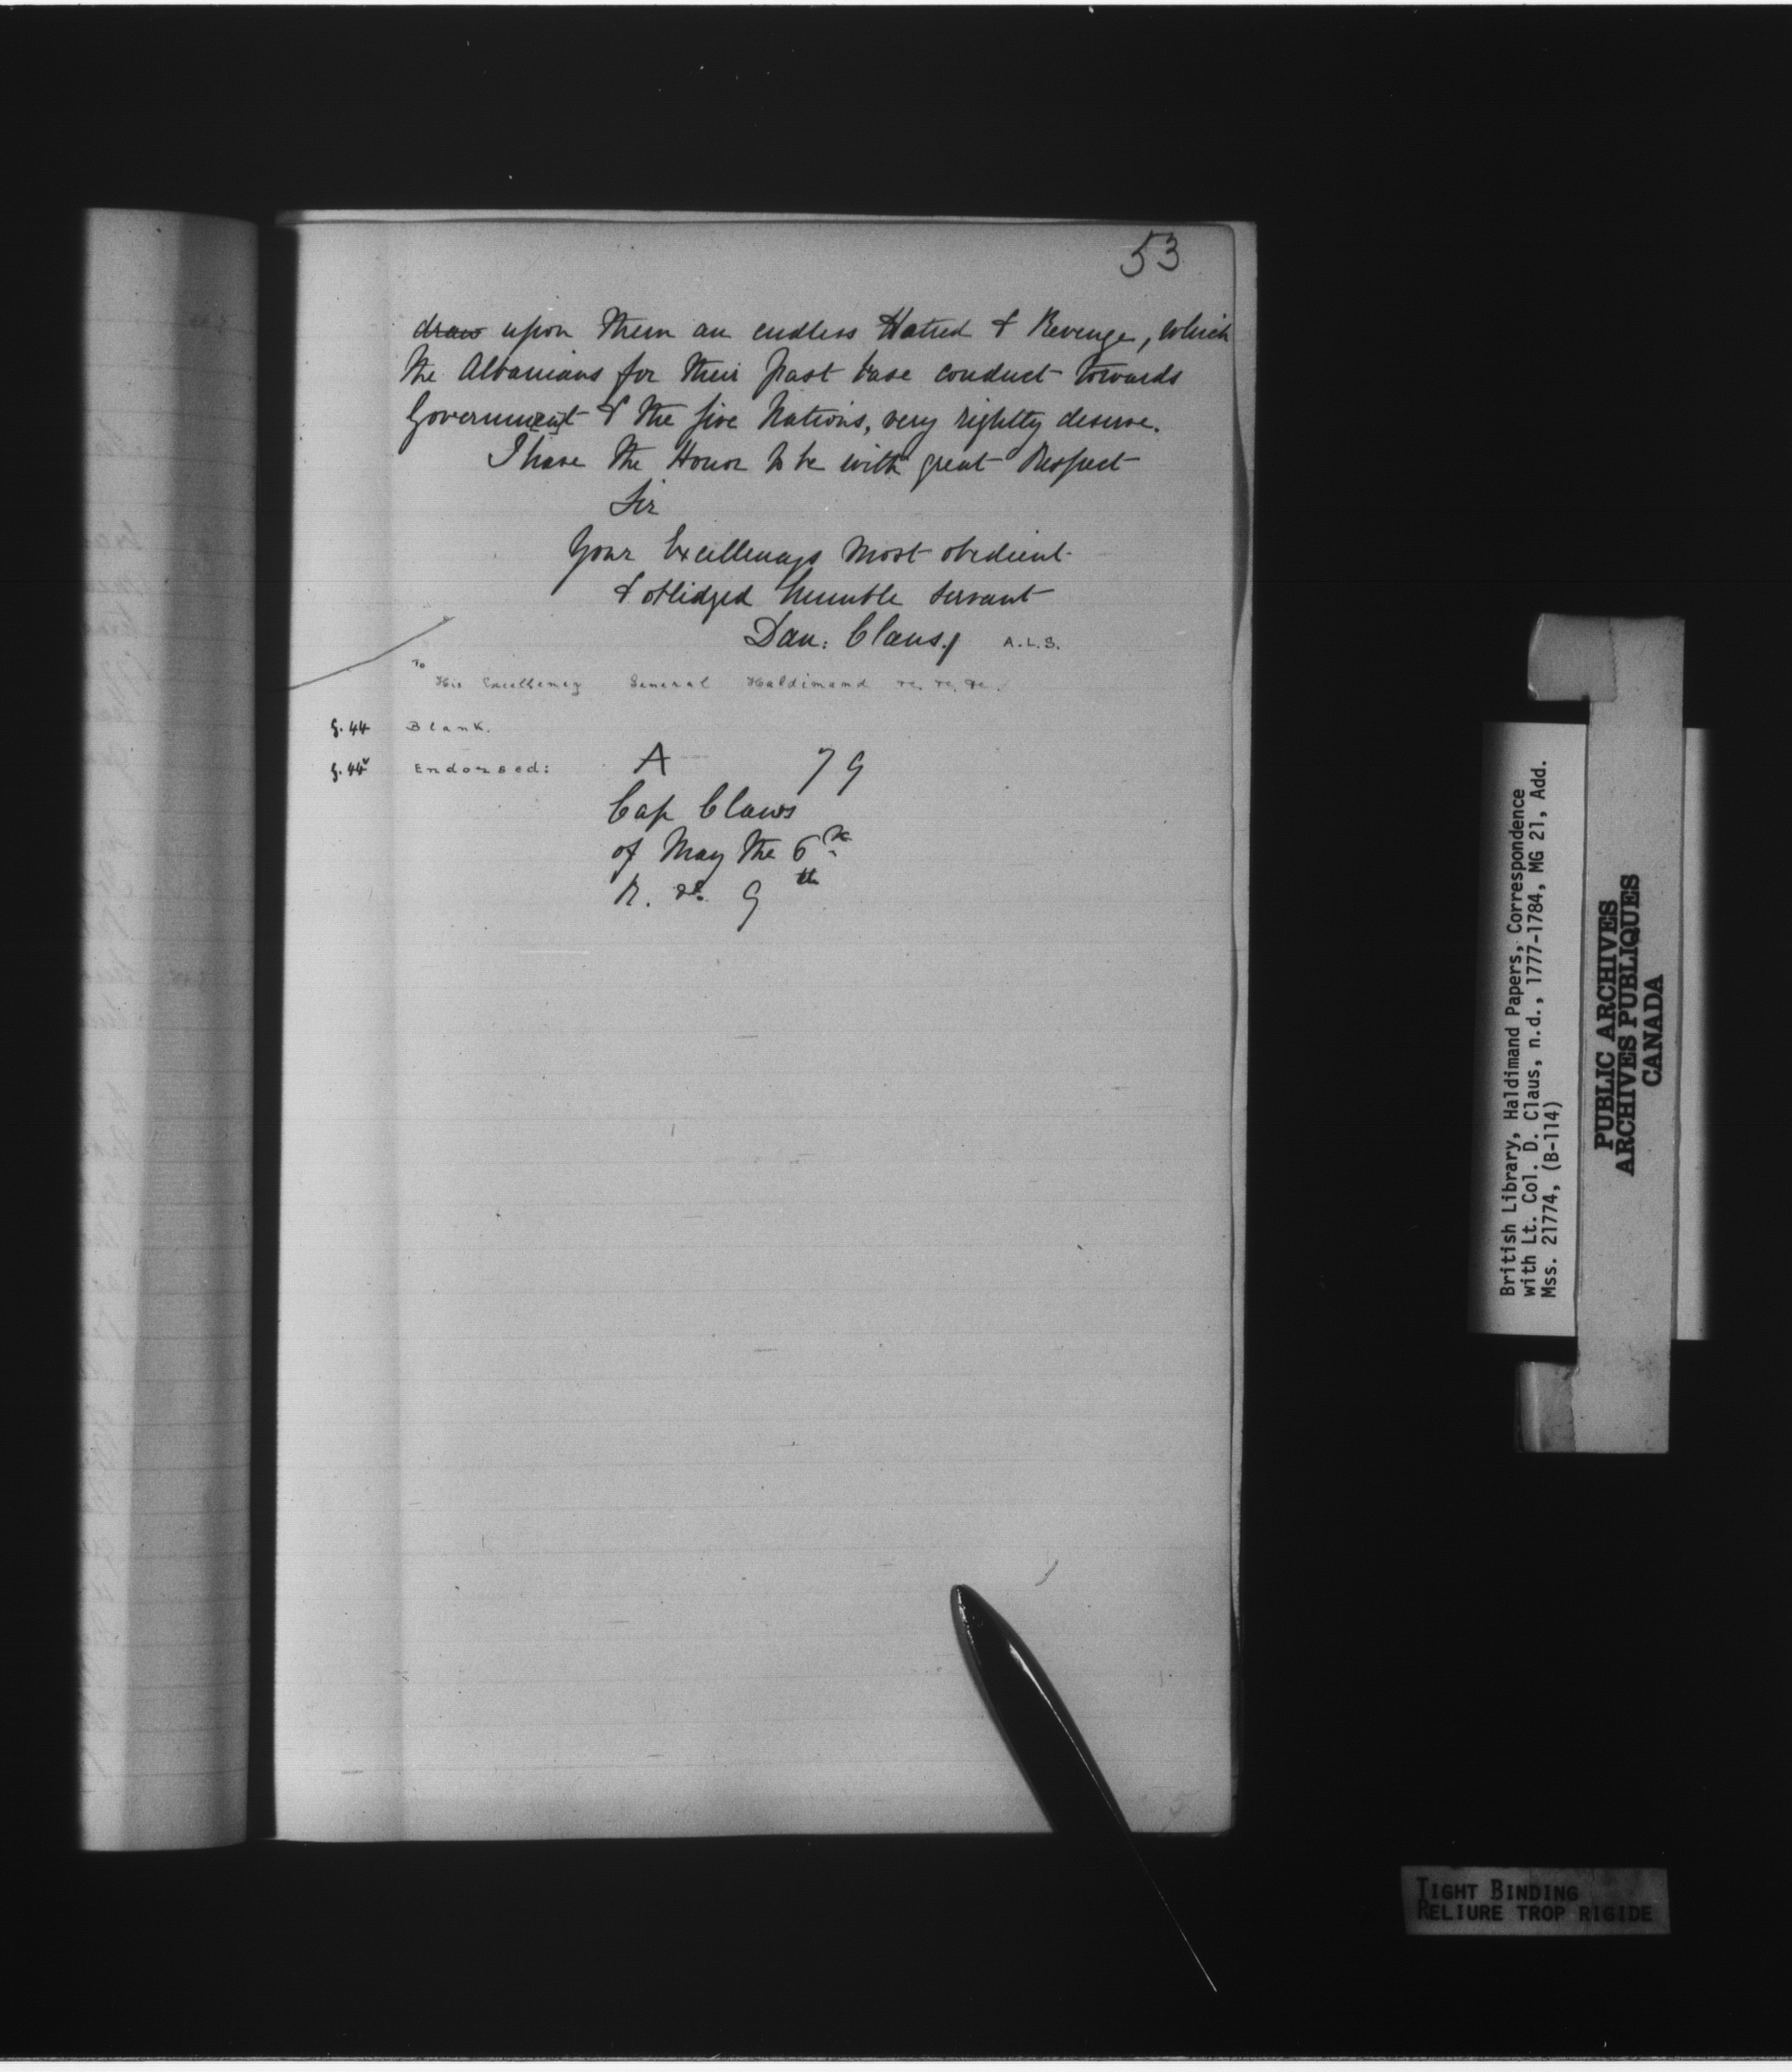 53
draw upon them an endless Hatred & Revenge, which
the Albanians for their past base conduct towards
Government & the five Nations, very rightly deserve.
I have the Honor to be with great Respect
Sir
Your Excellencys most obedient
& oblidged humble servant
Dan: Claus./ A.L.S.
To
His Excellency General Haldimand &c. &c. &c.
f. 44 Blank.
f. 44v Endorsed: A 79
Cap Claus
of May the 6th
R. do. 9th
British Library, Haldimand Papers, Correspondence
with Lt. Col. D. Claus, n.d., 1777-1784, MG 21, Add.
Mss. 21774, (B-114)
PUBLIC ARCHIVES
ARCHIVES PUBLIQUES
CANADA
TIGHT BINDING
RELIURE TROP RIGIDE